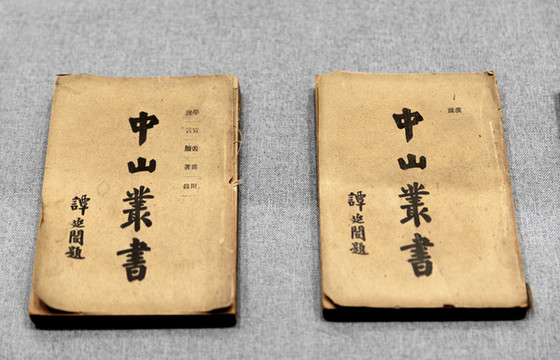 中山叢書
譚延闓題
中山叢書
譚延闓題